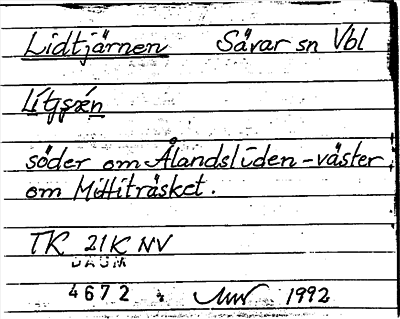 Lidtjärnen Sävar sn Vbl
söder om Ålandsliden - väster
om Mittiträsket.
TK 21K NV
DAUM
4672 1992